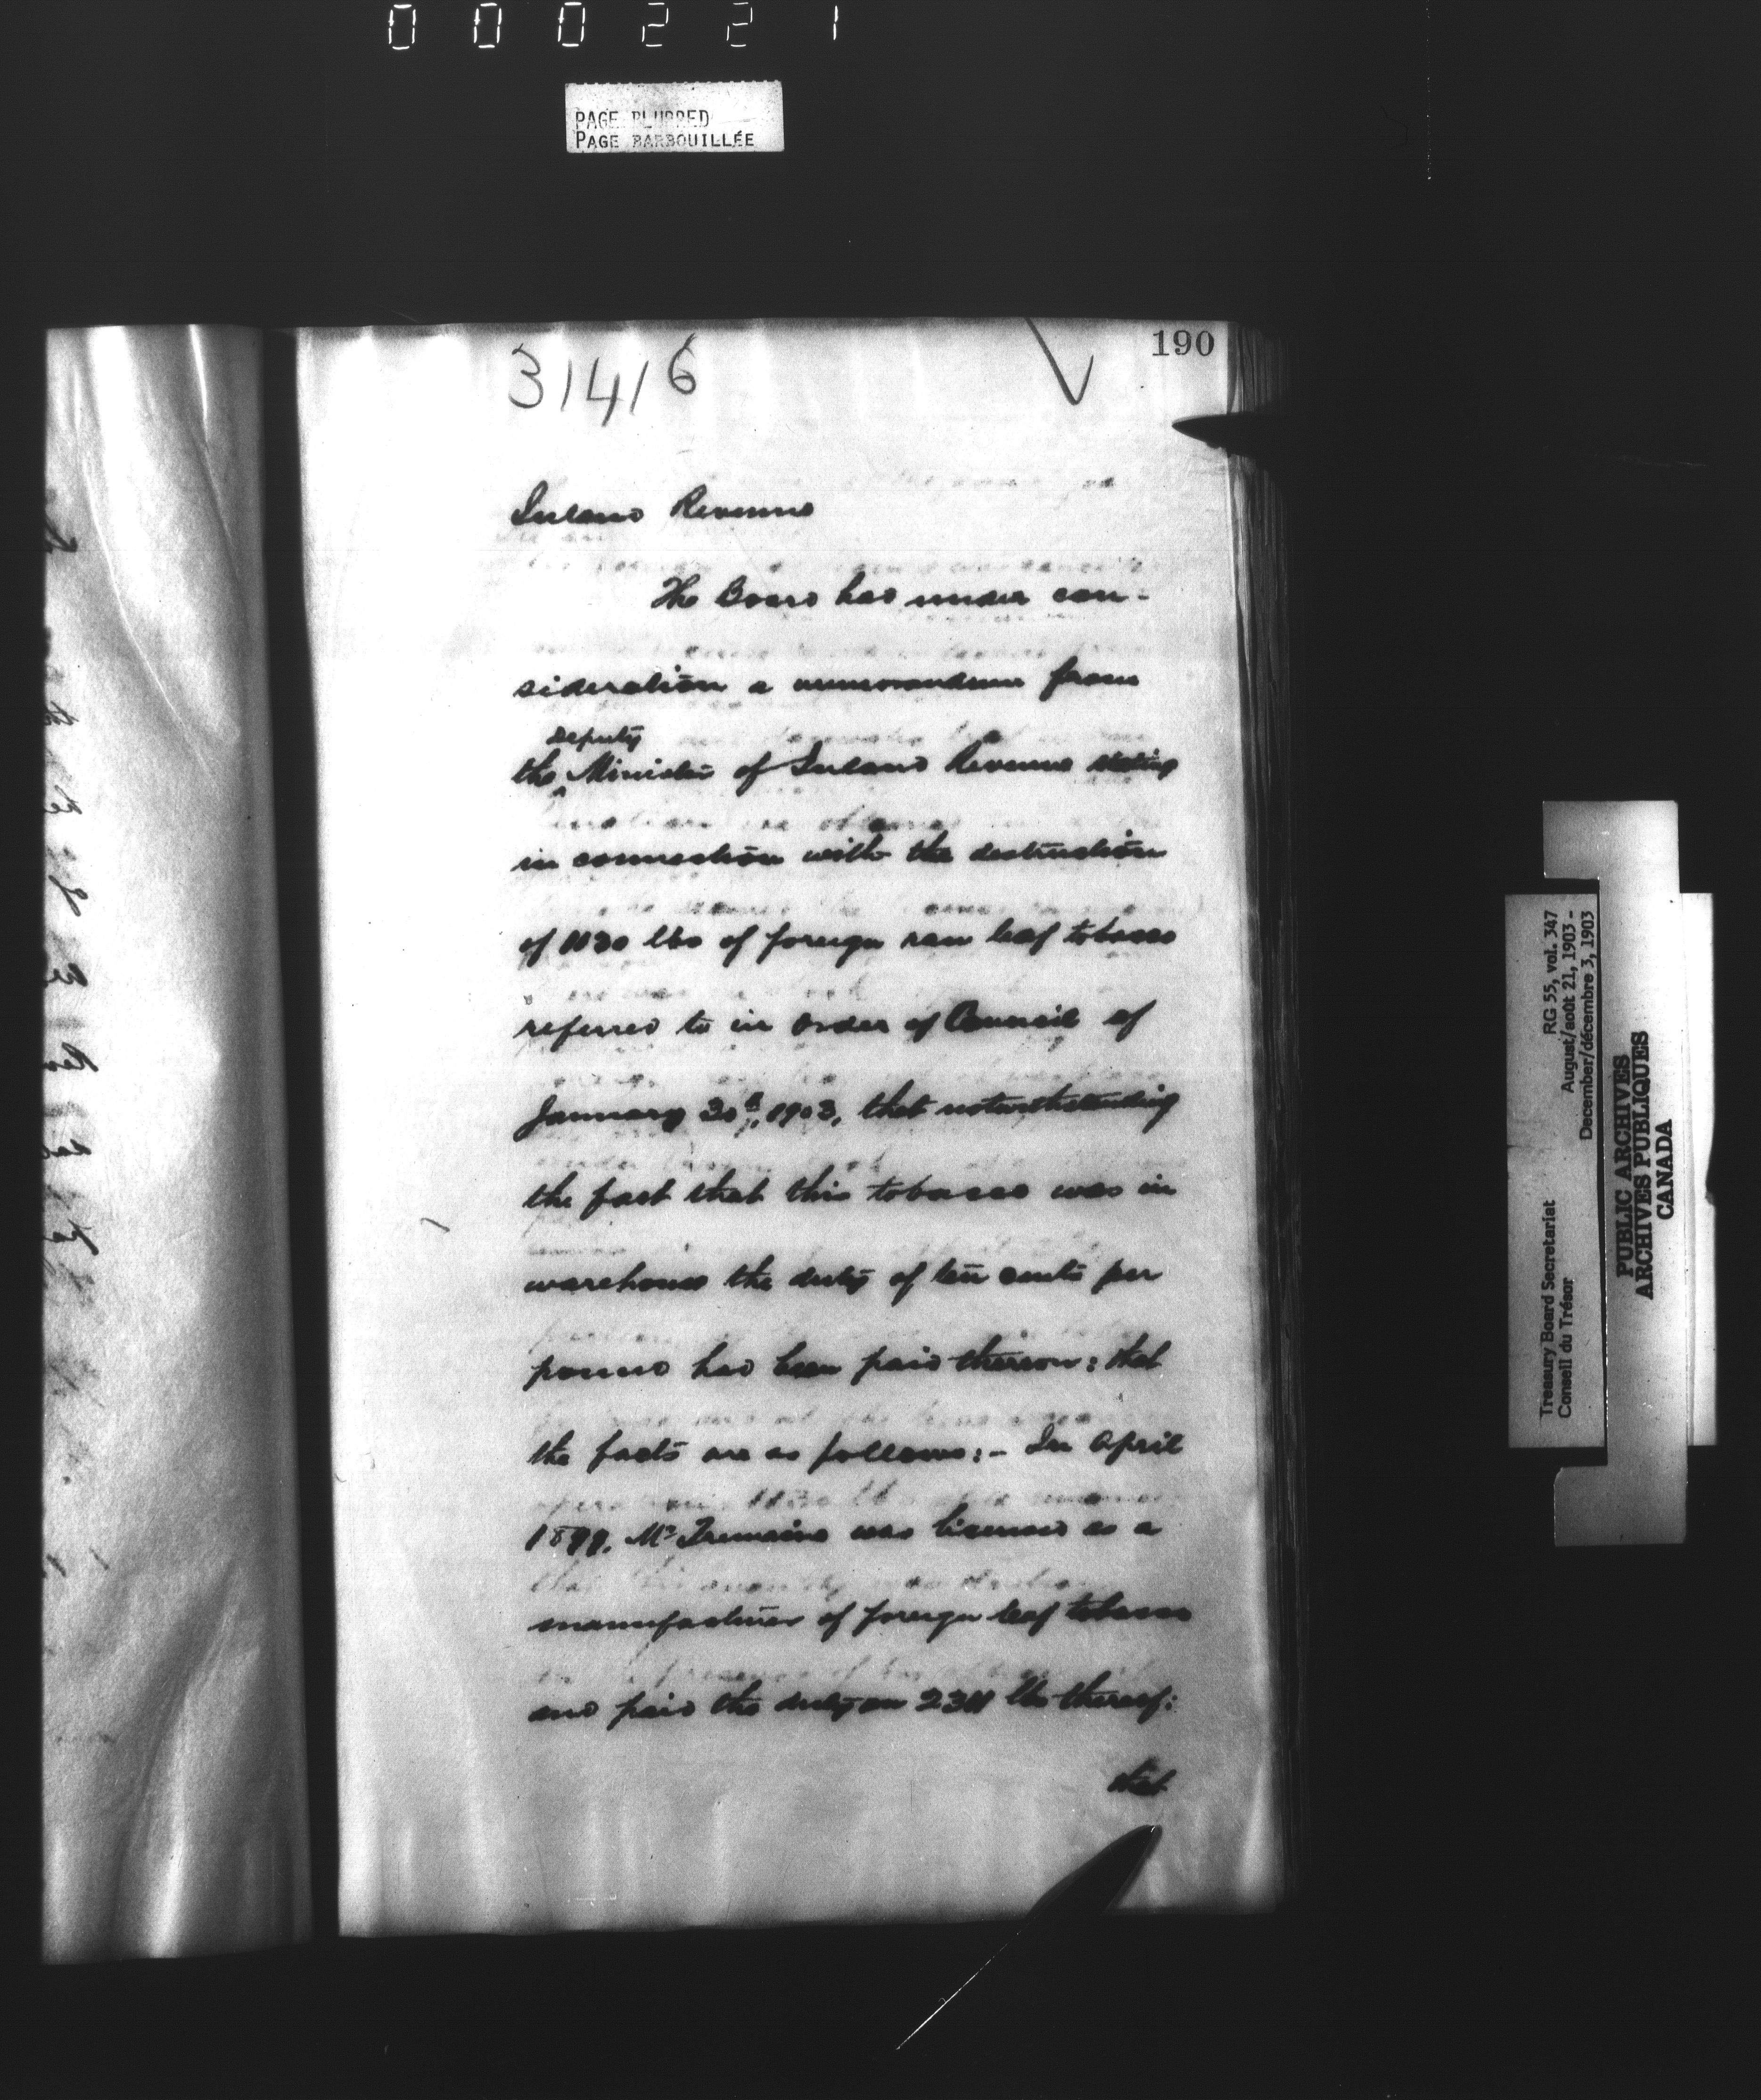 000221
PAGE BLURRED
PAGE BARBOUILLÉE
190
31416
Inland Revenue
The Board has under con-
sideration a memorandum from
deputy
the Minister of Inland Revenue stating
in connection with the destruction
of 1130 lbs of foreign raw leaf tobacco
referred to in Order of Council of
January 30th, 1903, that notwithstanding
the fact that this tobacco was in
warehouse the duty of ten cents per
pound had been paid thereon: that
the facts are as follows:- In April
1899, Mr Tremaine was licensed as a
manufacturer of foreign leaf tobacco
and paid the duty on 2311 lbs thereof:
that
Treasury Board Secretariat RG 55, vol. 347
Conseil du Trésor August/août 21, 1903 -
December/décembre 3, 1903
PUBLIC ARCHIVES
ARCHIVES PUBLIQUES
CANADA